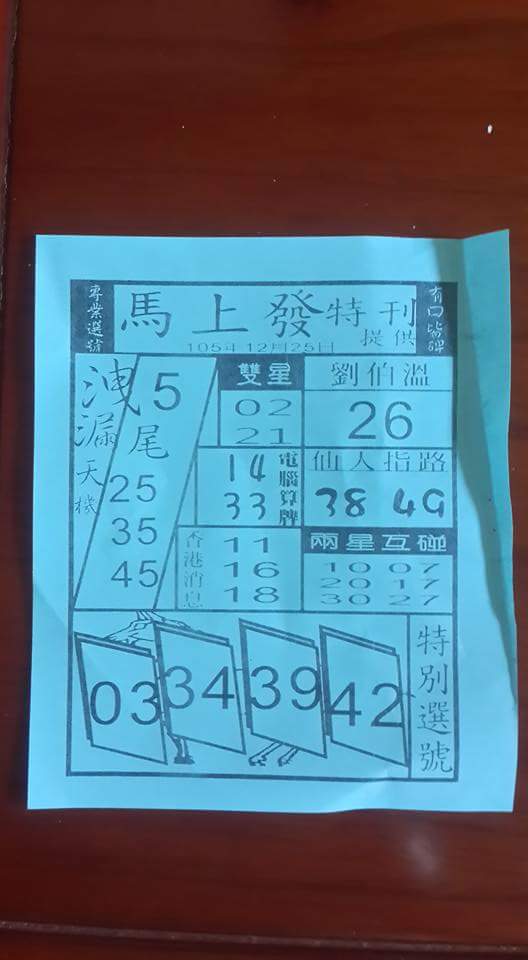 專業選號
馬上發特刊
提供
有口皆碑
105年12月25日
洩漏天機
5尾
25
35
45
雙星
02
21
劉伯溫
26
電腦算牌
14
33
仙人指路
38 49
香港消息
11
16
18
兩星互碰
10 07
20 17
30 27
03 34 39 42
特別選號